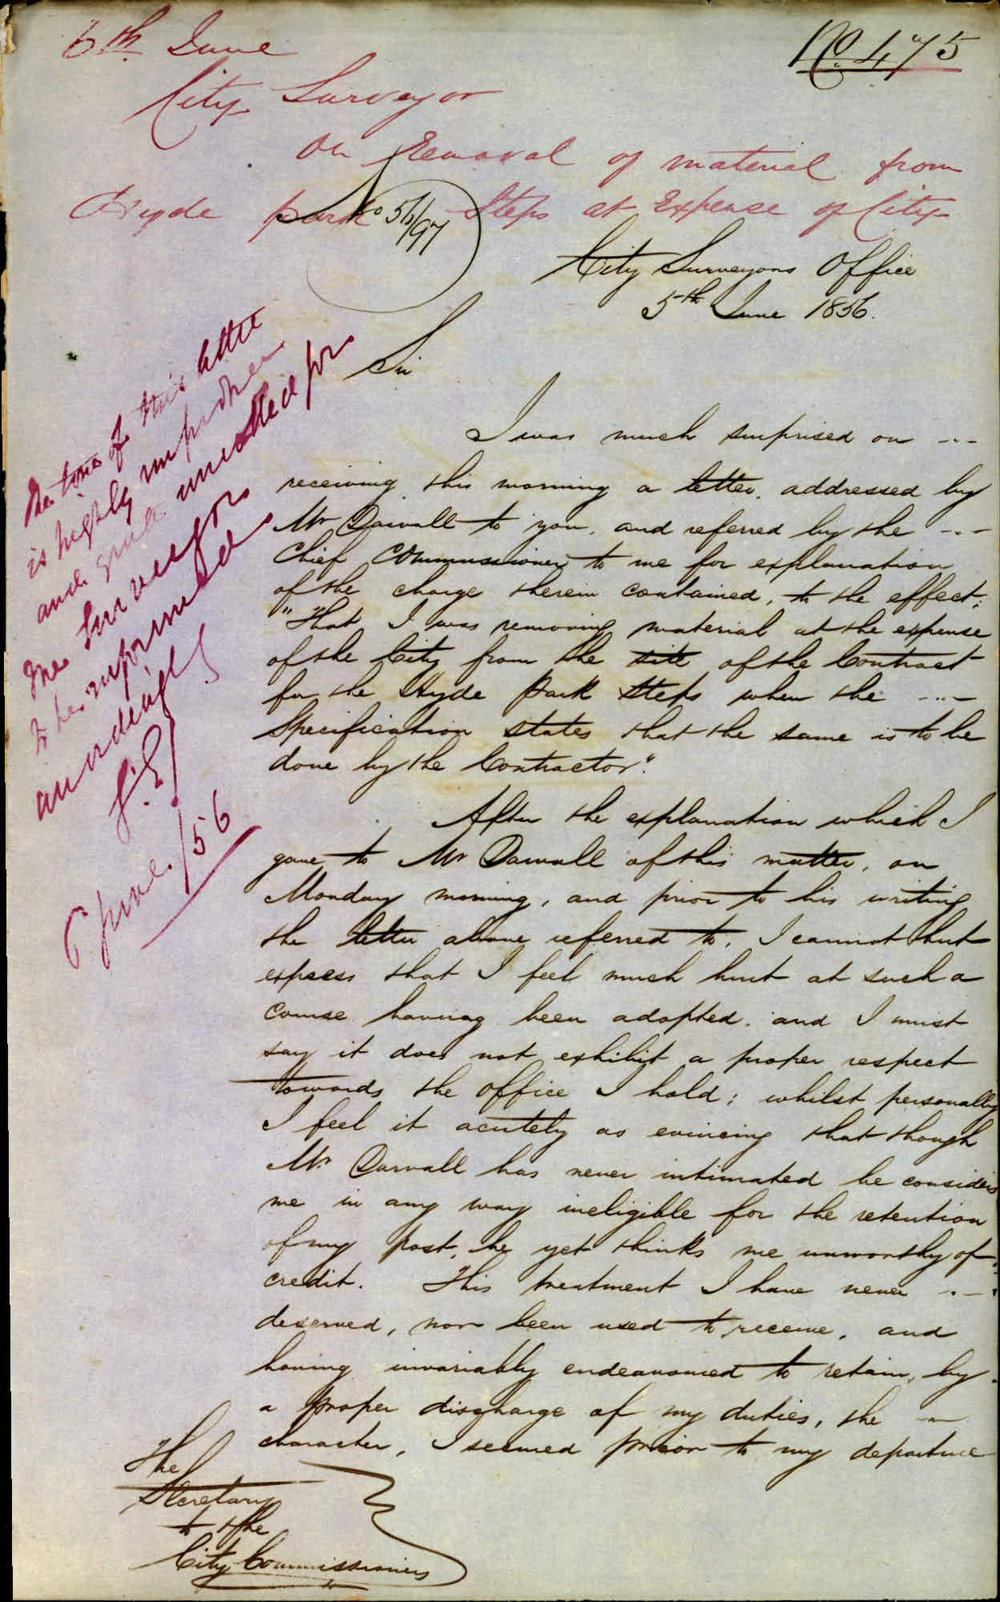 6th June
No. 475
City Surveyor
On Removal of material from
Hyde Park Steps at Expense of City
No 56/97
City Surveyors Office
5th June 1856.
Sir
The tone of this letter
is highly improper
and quite uncalled for
The Surveyor
to be informed
accordingly
6 June /56
I was much surprised on ---
receiving this morning a letter, addressed by
Mr Darvall to you, and referred by the ---
Chief Commissioner to me for explanation
of the charge therein contained, to the effect;
"That I was removing material at the expense
of the City from the site of the Contract
for the Hyde Park Steps when the ---
Specification states that the same is to be
done by the Contractor".
After the explanation which I
gave to Mr Darvall of this matter, on
Monday morning, and prior to his writing
the letter above referred to, I cannot but
express that I feel much hurt at such a
course having been adopted, and I must
say it does not exhibit a proper respect
towards the office I hold; whilst personally
I feel it acutely as evincing that though
Mr Darvall has never intimated he considers
me in any way ineligible for the retention
of my post, he yet thinks me unworthy of
credit. This treatment I have never ---
deserved, nor been used to receive, and
having invariably endeavoured to retain, by
a proper discharge of my duties, the -
character, I seemed prior to my departure
The
Secretary
to the
City Commissioners